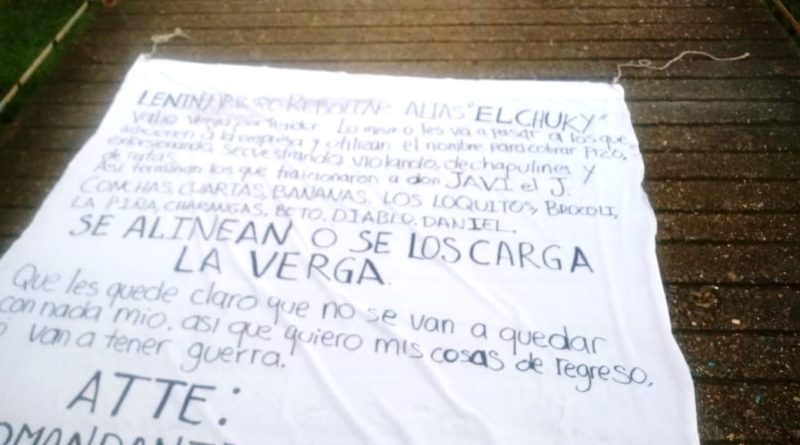 LENIN REBOLTAR ALIAS "EL CHUKY"
Valio Verga por tenedor Lo mismo les va a pasar a los que
traicionen a la empresa y utilizan el nombre para cobrar Pizo,
Secuestrando, violando, de chapulines y
de ratas
Así terminan los que traicionaron a don JAVI el J.
CONCHAS, CUARTAS, BANANAS. LOS LOQUITOS, BROCOLI,
LA PIÑA, CHARANGAS, BETO, DIABLO, DANIEL.
SE ALINEAN O SE LOS CARGA
LA VERGA.
Que les quede claro que no se van a quedar
con nada mio, así que quiero mis cosas de regreso,
o van a tener guerra.
ATTE: